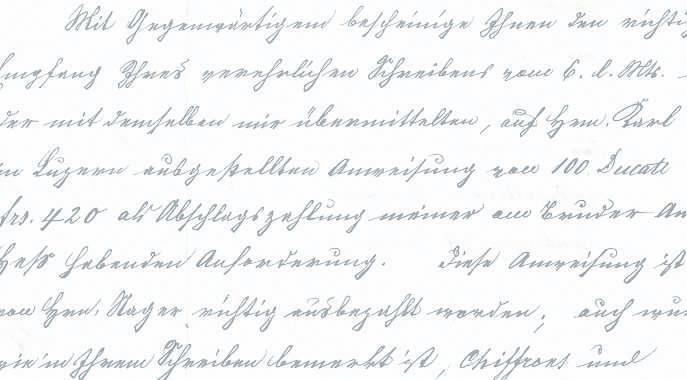 Mit Gegenwärtigem bescheinige Ihnen den richtig
Empfang Ihres verehrlichen Schreibens vom 6. d. Mts.
der mit demselben mir übermittelten, auf Hrn. Karl
in Luzern ausgestellten Anweisung von 100 Ducati
frs. 420 als Abschlagszahlung meiner am Bruder An
Hess habenden Anforderung. Diese Anweisung ist
von Hrn. Nager richtig ausbezahlt worden; auch wur
wie in Ihrem Schreiben bemerkt ist, Chiffront und